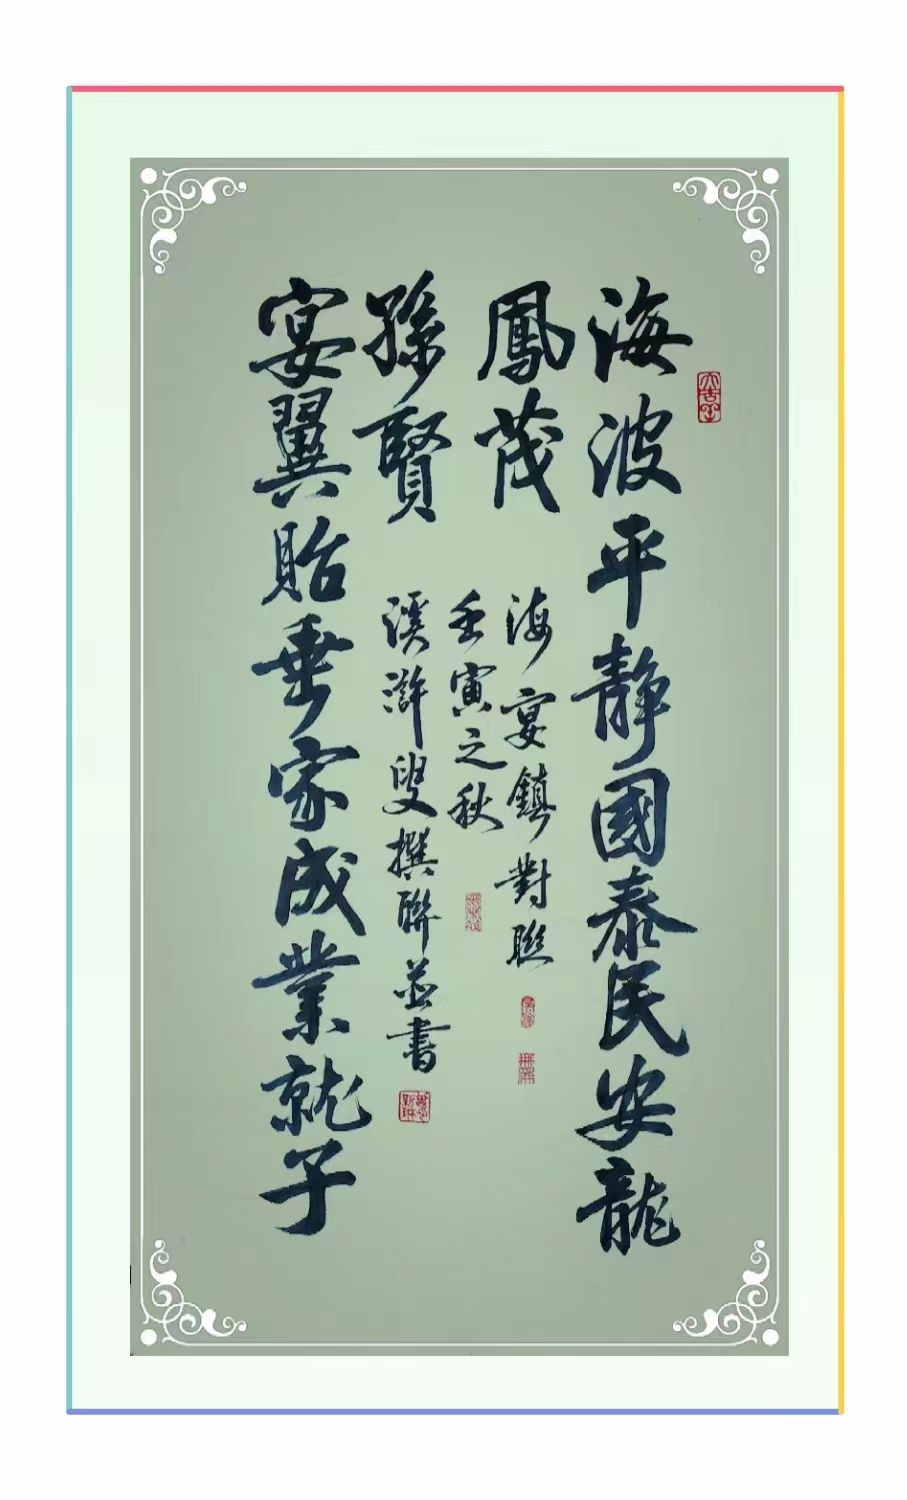 海波平静國泰民安龍
鳳茂
海宴鎮對聯
壬寅之秋
宴翼貽垂家成業就子
孫賢
溪滸叟撰聯並書